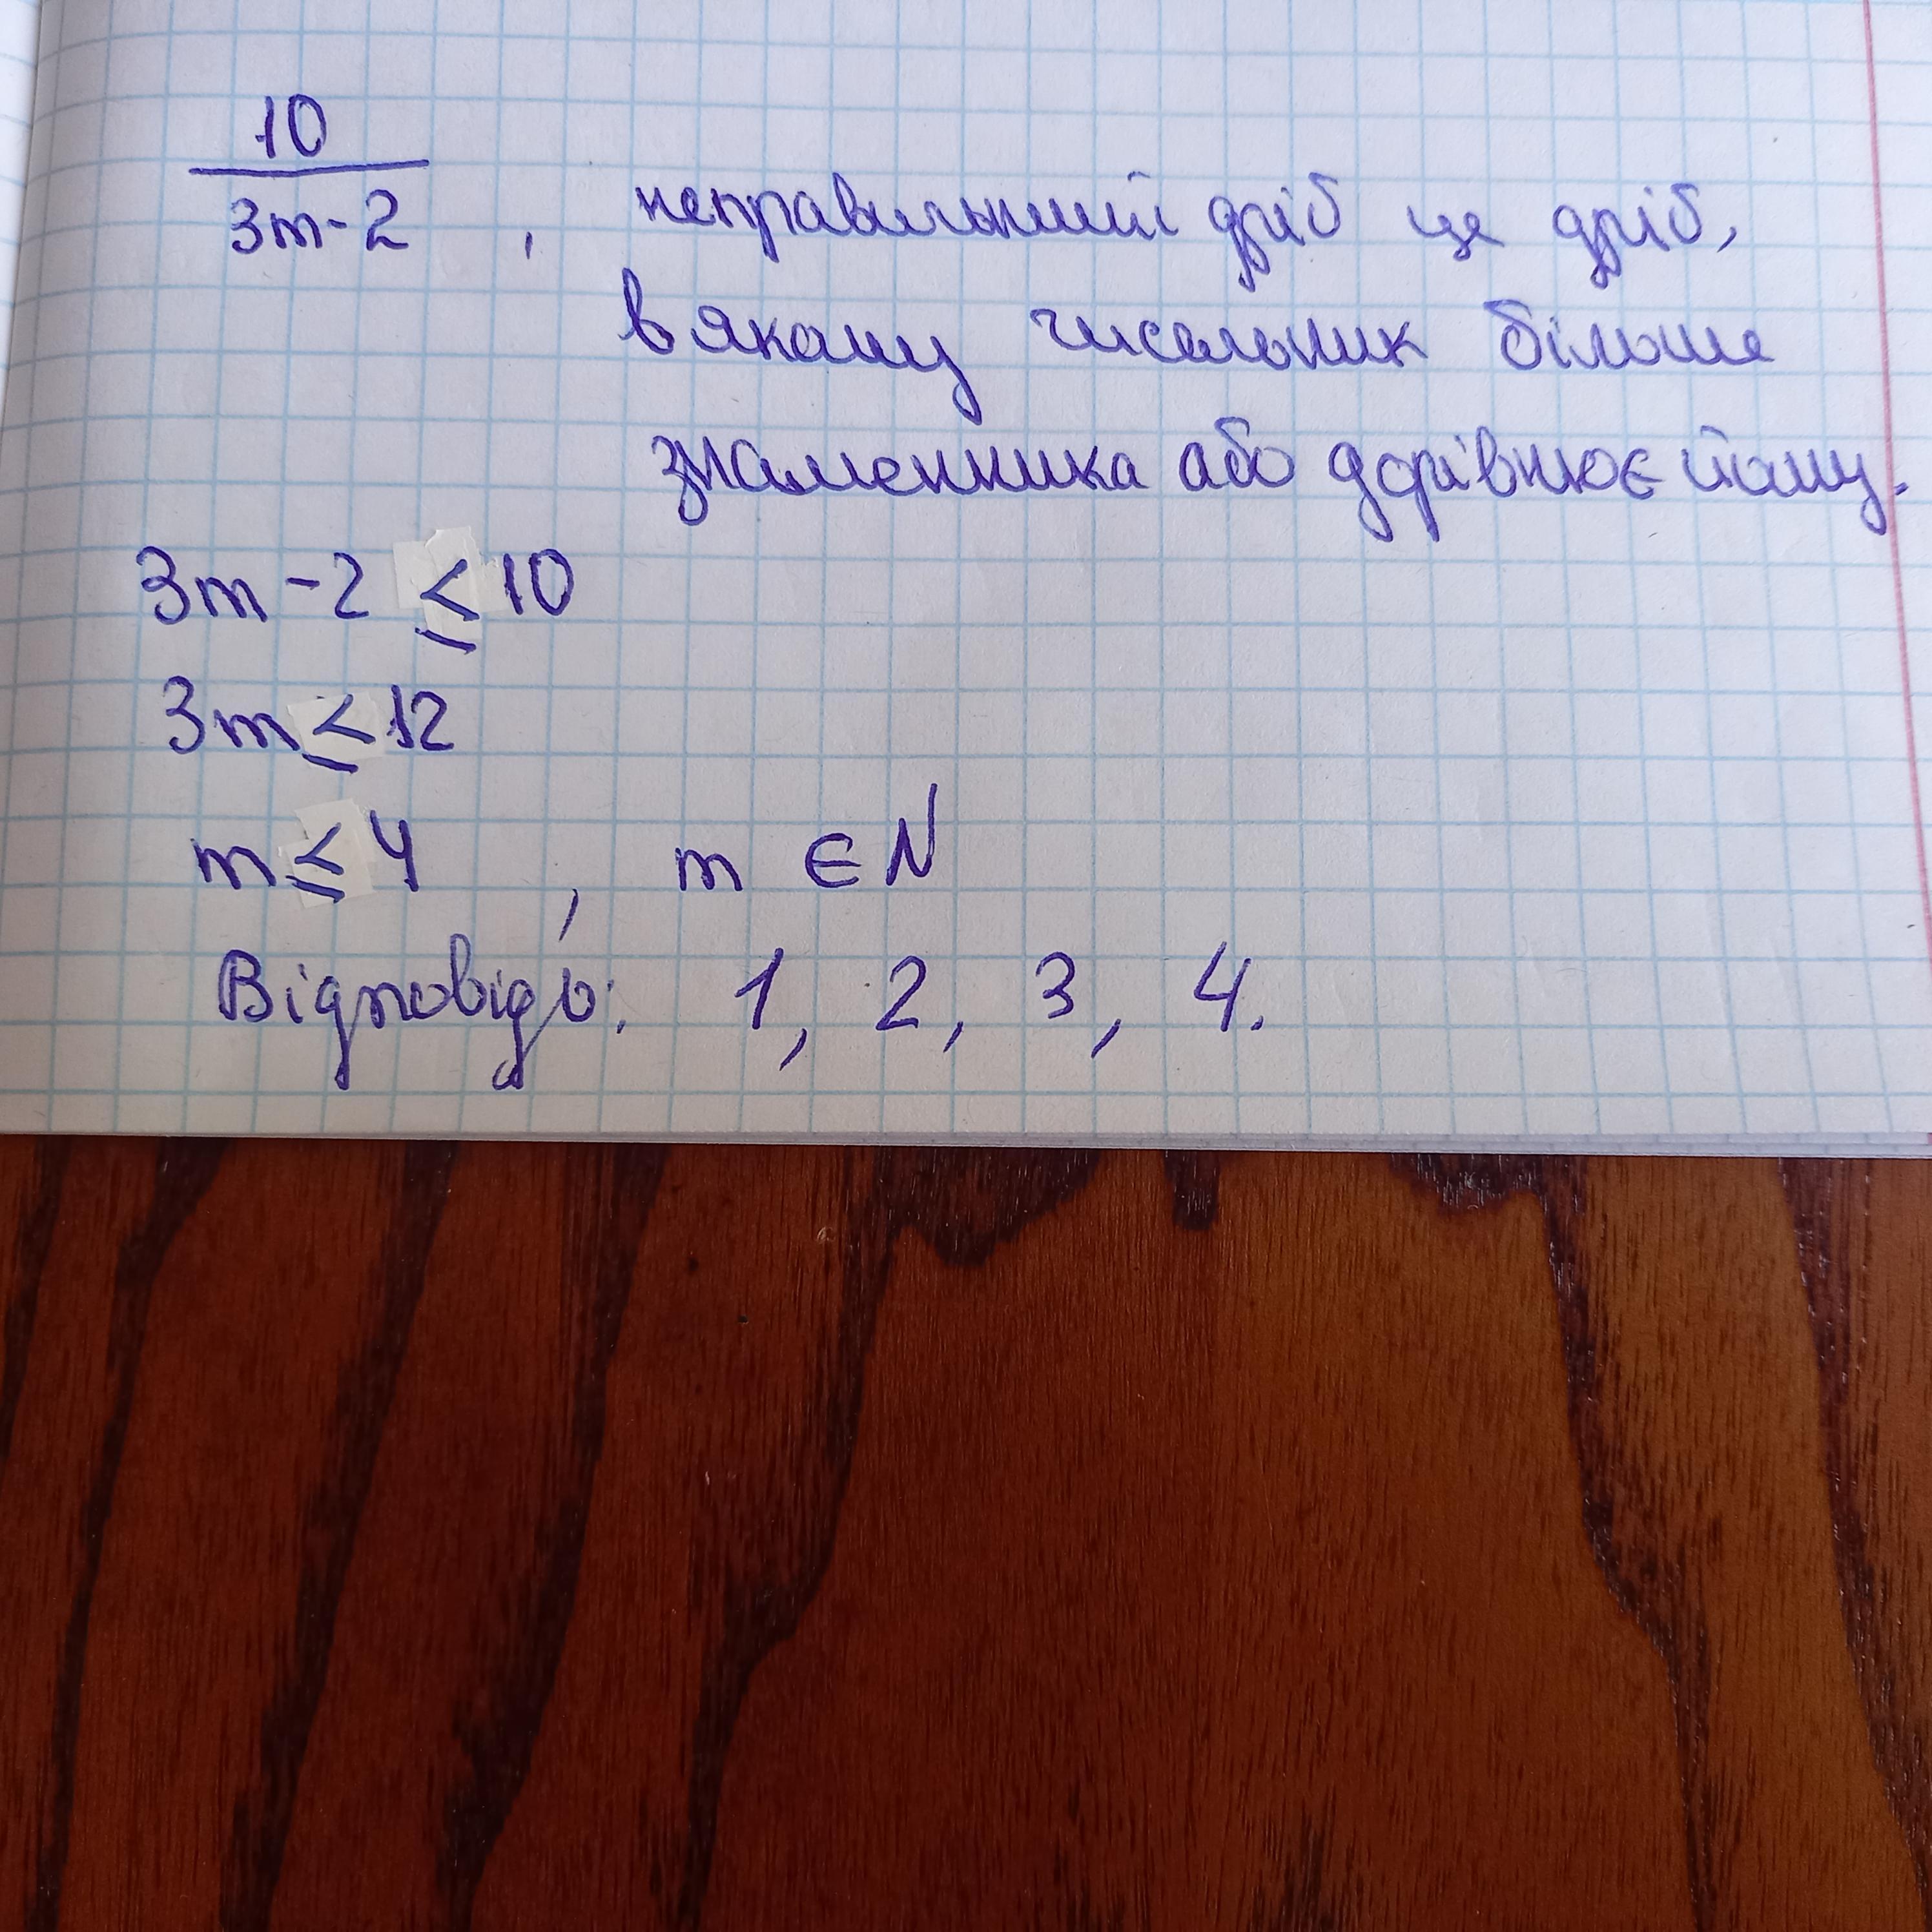 10
3m-2 , неправильний дріб це дріб,
в якому чисельник більше
знаменника або дорівнює йому.
3m - 2 ≤ 10
3m ≤ 12
m ≤ 4 , m ∈ N
Відповідь: 1, 2, 3, 4.